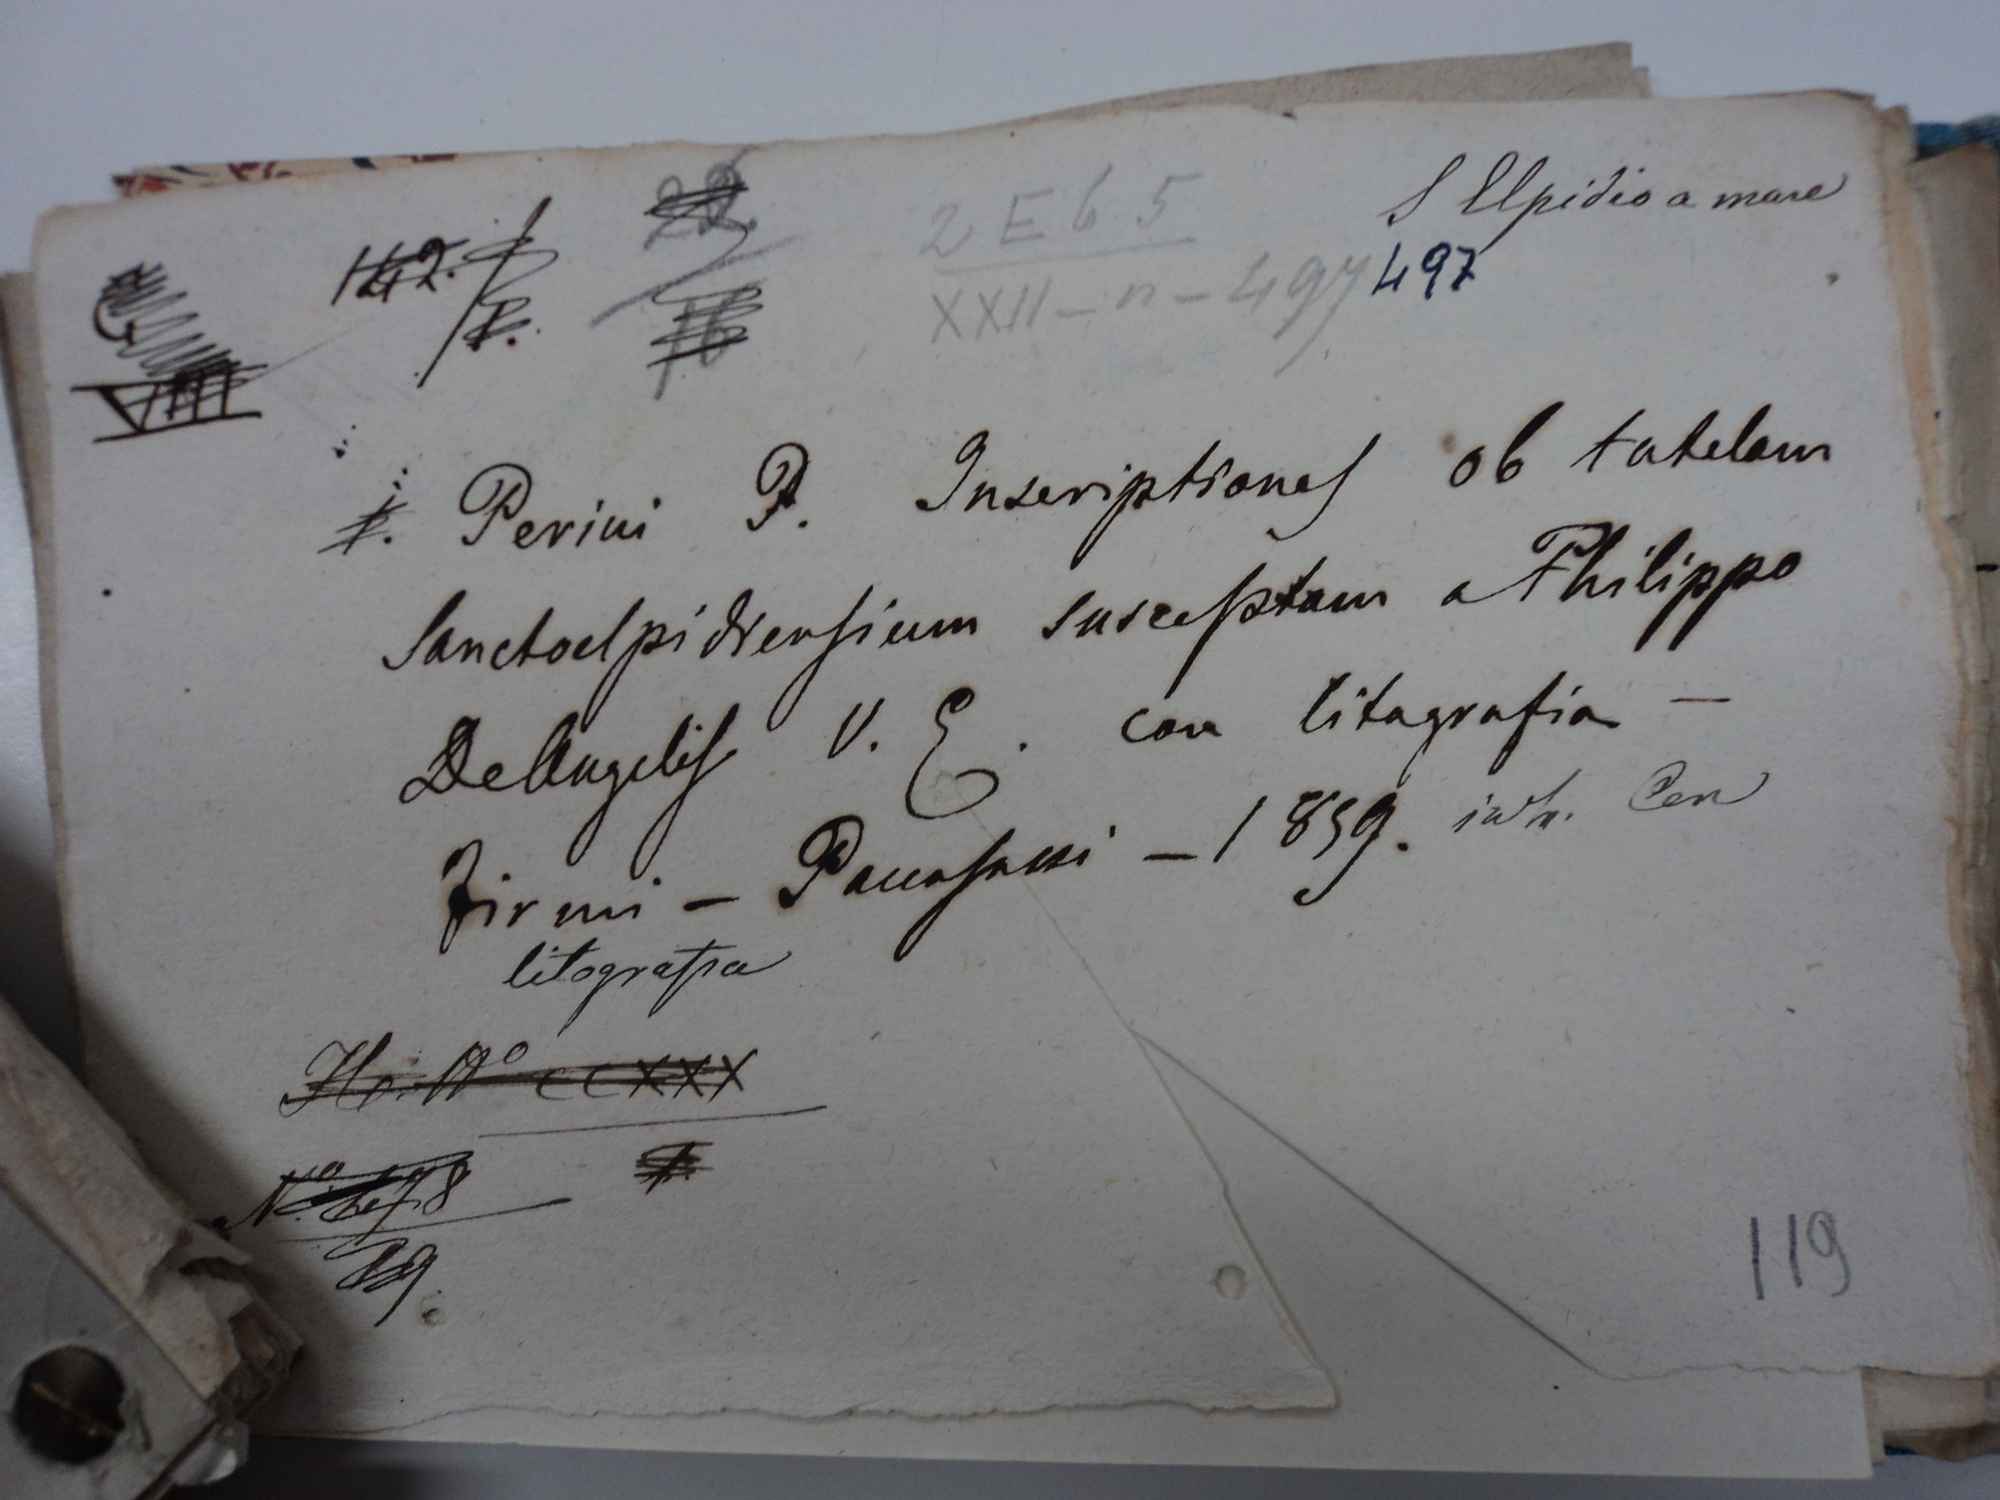 S Elpidio a mare
142.
22
2 E b 5
XXII - n - 497 497
VIII
Perini P. Inscriptiones ob tutelam
Sanctoelpidiensium susceptam a Philippo
De Angelis V. E. con litografia —
Firmi — Paccasassi — 1859. in
litografia
No CCXXX
No.
119